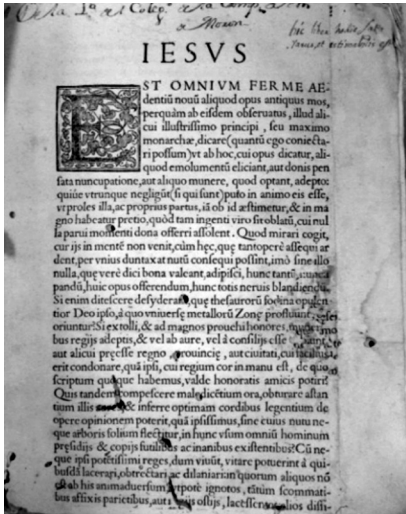 De la
IESVS
EST OMNIVM FERME AE-
dentiū nouū aliquod opus antiquus mos,
perquàm ab eisdem obseruatus, illud ali-
cui illustrissimo principi, seu maximo
monarchæ, dicare (quantū ego coniecta-
ri possum) vt ab hoc, cui opus dicatur, ali-
quod emolumentū eliciant, aut donis pen
sata nuncupatione, aut aliquo munere, quod optant, adepto:
quiue vtrunque negligūt (si qui sunt) puto in animo eis esse,
vt proles illa, ac proprius partus, iā ob id æstimetur, & in ma
gno habeatur pretio, quòd tam ingenti viro sit oblatū, cui nul
la parui momenti dona offerri assolent. Quod mirari cogit,
cur ijs in mentē non venit, cùm hęc, quę tantoperè assequi ar
dent, per vnius duntaxat nutū consequi possint, imò sine illo
nulla, quę verè dici bona valeant, adipisci, hunc tantū,
pandū, huic opus offerendum, hunc totis neruis blandiendū
Si enim ditescere desyderatis, quę thesaurorū fodina opulen
tior Deo ipso, à quo vniuersę metallorū Zonę profluunt,
oriuntur? Si ex tolli, & ad magnos prouehi honores,
bus regijs adeptis, & vel ab aure, vel à consilijs esse
aut alicui pręesse regno, prouincię, aut ciuitati, cui facilius
erit condonare, quā ipsi, cui regium cor in manu est, de quo
scriptum quoque habemus, valde honoratis amicis potiri?
Quis tandem compescere maledicētium ora, obturare astan
tium illis & inferre optimam cordibus legentium de
opere opinionem poterit, quā ipsissimus, sine cuius nutu ne-
que arboris folium flectitur, in hunc vsum omniū hominum
pręsidijs & copijs futilibus ac inanibus existentibus? Cū ne-
que ipsi potētissimi reges, dum viuūt, vitare potuerint à qui-
busdā lacerari, obtrectari ac dilaniari: in quorum aliquos nō
ab his animaduersum vtpotè ignotos, tātùm scommati-
bus affixis parietibus, aut ostijs, lacessere alios dissi-